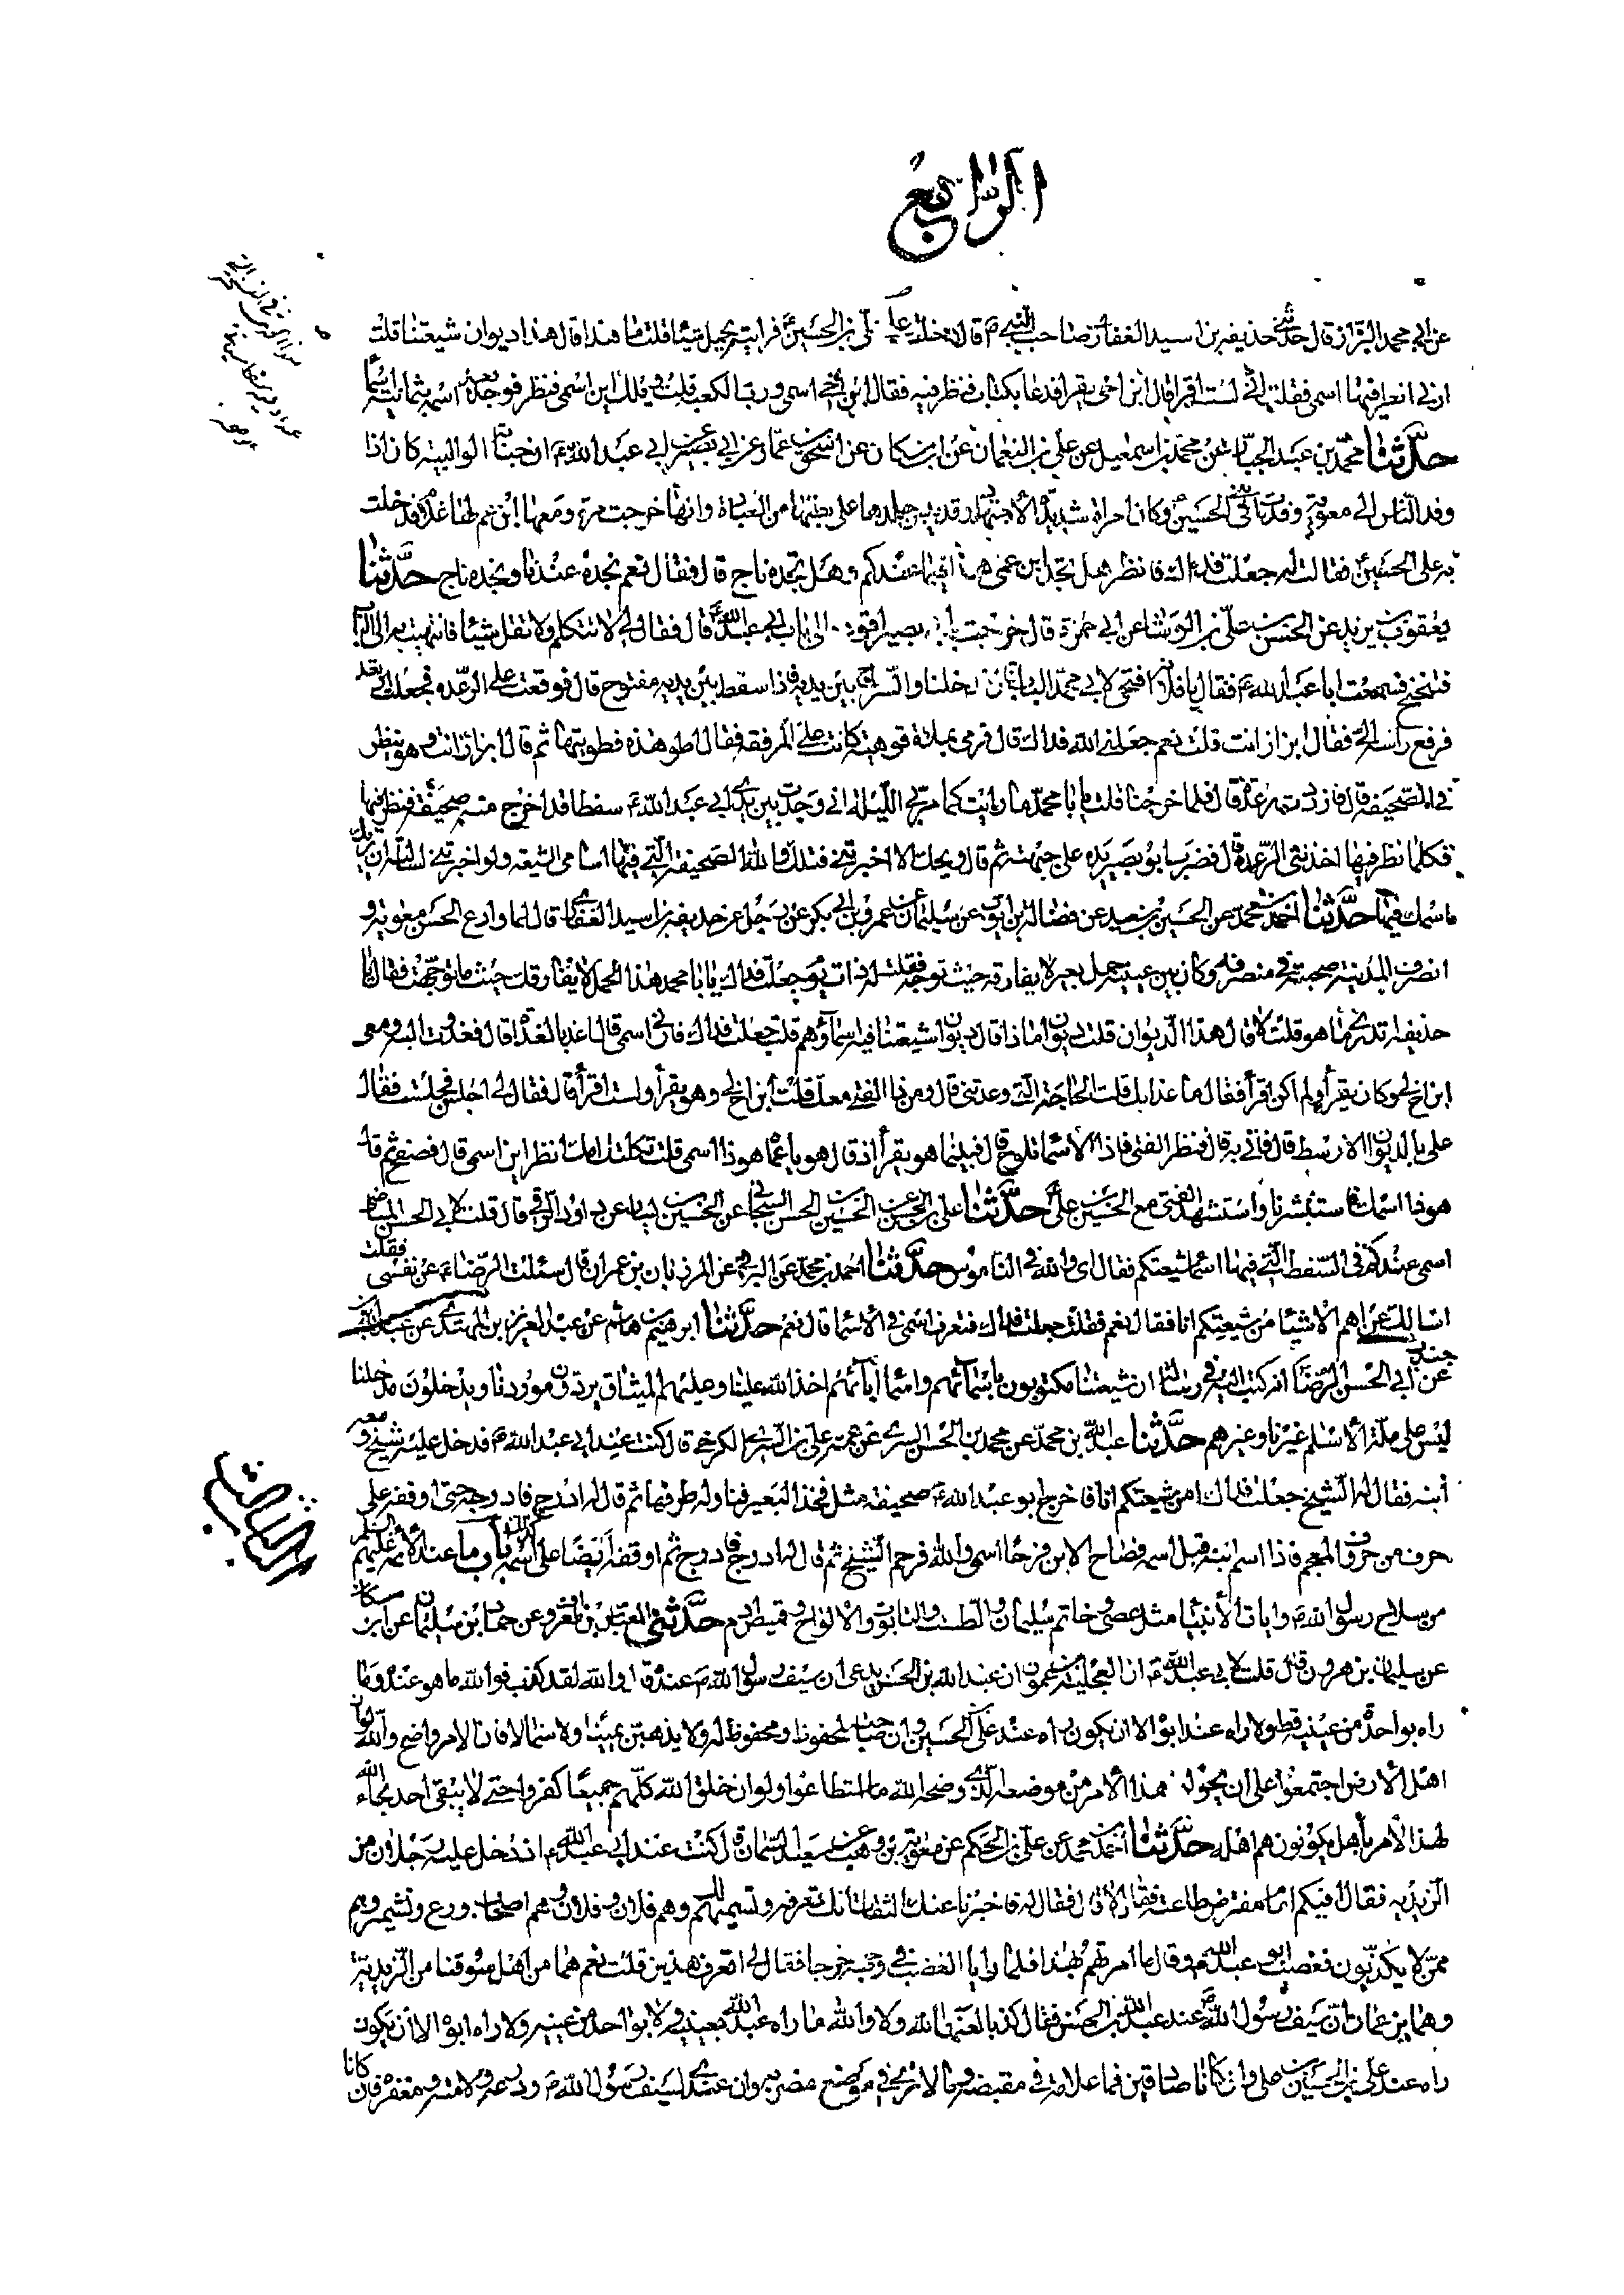 الرابع
عن ابي محمد البزاز قال حدثني حذيفة بن اسيد الغفاري صاحب النبي ص قال دخلت على علي بن الحسين ع فرايته يحمل شيئا قلت ما هذا قال هذا ديوان شيعتنا قلت
ارني انظر فيها اسمي فقلت اني لست اقرا قال ابن اخي يقرا فدعا بكتاب فنظر فيه فقال ابن اخي اسمي ورب الكعبة قلت ويلك اين اسمي فنظر فوجد بعد اسمه بثمانية اسما
حدثنا محمد بن عبد الجبار عن محمد بن اسمعيل عن علي بن النعمان عن ابن مسكان عن اسحق بن عمار عن ابي بصير عن ابي عبد الله ع ان حبابة الوالبية كان اذا
وفد الناس الى معوية وفدت الى الحسين ع وكان امراة شديدة الاجتهاد قد يبس جلدها على بطنها من العبادة وانها خرجت مرة ومعها ابن عم لها غلام فدخلت
به على الحسين ع فقالت له جعلت فداك فانظر هل تجد ابن عمي هذا فيما عندكم وهل تجده ناج قال فقال نعم نجده عندنا ونجده ناج حدثنا
يعقوب بن يزيد عن الحسن بن علي بن الوشا عن ابي حمزة قال خرجت بابي بصير اقوده الى باب ابي عبد الله ع قال فقال لي لا تتكلم ولا تقل شيئا فانتهيت به الى الباب
فتنحنح فسمعت ابا عبد الله ع فقال يا فلانة افتحي لابي محمد الباب قال فدخلنا والسراج بين يديه فاذا سفط بين يديه مفتوح قال فوقعت علي الرعده فجعلت ارتعد
فرفع راسه الي فقال ابزاز انت قلت نعم جعلني الله فداك قال فرمى بملاة قوهية كانت على المرفقة فقال اطو هذه فطويتها ثم قال ابزاز انت وهو ينظر
في الصحيفة قال فازددت رعدة قال فلما خرجنا قلت يا با محمد ما رايت كما مر بي الليلة اني وجدت بين يدي ابي عبد الله ع سفطا قد اخرج منه صحيفة فنظر فيها
فكلما نظر فيها اخذتني الرعدة قال فضرب ابو بصير يده على جبهته ثم قال ويحك الا اخبرتني فتلك والله الصحيفة التي فيها اسامي الشيعة ولو اخبرتني لسالته ان يريك
اسمك فيها حدثنا احمد بن محمد عن الحسين بن سعيد عن فضالة بن ايوب عن سليمان عن عمرو بن ابي بكر عن رجل عن حذيفة بن اسيد الغفاري قال لما وادع الحسن معوية و
انصرف الى المدينة صحبته في منصرفه وكان بين عينيه حمل بعير لا يفارقه حيث توجه فقلت له ذات يوم جعلت فداك يا با محمد هذا الحمل لا يفارقك حيث ما توجهت فقال يا
حذيفة اتدري ما هو قلت لا قال هذا الديوان قلت ديوان ماذا قال ديوان شيعتنا فيه اسماؤهم قلت جعلت فداك فارني اسمي قال اغد بالغداة قال فغدوت اليه ومعي
ابن اخ لي وكان يقرأ ولم اكن اقرأ فقال ما غدا بك قلت الحاجة التي وعدتني قال ومن ذا الفتى معك قلت ابن اخ لي وهو يقرأ ولست اقرأ قال فقال لي اجلس فجلست فقال
علي بالديوان الاوسط قال فاتي به قال فنظر الفتى فاذا الاسما تلوح قال فبينما هو يقرأ اذ قال هو يا عماه هوذا اسمي قلت ثكلتك امك انظر اين اسمي قال فصفح ثم قال
هوذا اسمك فاستبشرنا واستشهد الفتى مع الحسين بن علي ع حدثنا علي بن الحسن عن الحسين بن الحسن السنجاني عن الحسين بن يسار عن داود الرقي قال قلت لابي الحسن الماضي
اسمي عندكم في السفط التي فيها اسما شيعتكم فقال اي والله في الناموس حدثنا احمد بن محمد عن البرقي عن المرزبان بن عمران قال سئلت الرضا ع عن نفسي فقلت
اسالك عن اهم الاشيا من شيعتكم انا فقال نعم فقلت جعلت فداك فتعرف اسمي في الاسما قال نعم حدثنا ابرهيم بن هاشم عن عبد العزيز بن المهتدي عن عبد الله بن جندب
عن ابي الحسن الرضا ع انه كتب اليه في رسالة ان شيعتنا مكتوبون باسمائهم واسما آبائهم اخذ الله علينا وعليهم الميثاق يردون موردنا ويدخلون مدخلنا
ليس على ملة الاسلام غيرنا وغيرهم حدثنا عبد الله بن محمد عن محمد بن الحسن السري عن عمه علي بن السري الكرخي قال كنت عند ابي عبد الله ع فدخل عليه شيخ ومعه
ابنه فقال له الشيخ جعلت فداك امن شيعتكم انا فاخرج ابو عبد الله ع صحيفة مثل فخذ البعير فناوله طرفها ثم قال له ادرج فادرجه حتى اوقفه على
حرف من حروف المعجم فاذا اسم ابنه قبل اسمه فصاح الابن فرحا اسمي والله فرحم الشيخ ثم قال له ادرج فادرج ثم اوقفه ايضا على اسمه كذلك باب ما عند الائمة عليهم السلم
من سلاح رسول الله ص وايات الانبيا مثل عصى وخاتم سليمان والطست والتابوت والالواح وقميص ادم حدثني العباس بن معروف عن حماد بن سليمان عن ابن مسكان
عن سليمان بن هرون قال قلت لابي عبد الله ع ان العجلية يزعمون ان عبد الله بن الحسن يدعى ان سيف رسول الله ص عنده قال والله لقد كذب فوالله ما هو عنده وما
راه بواحدة من عينيه قط ولا راه عند ابوه الا ان يكون راه عند علي بن الحسين وان صاحبه لمحفوظ ومحفوظ له ولا يذهبن يمينا ولا شمالا فان الامر واضح والله لو ان
اهل الارض اجتمعوا على ان يحولوا هذا الامر من موضعه الذي وضعه الله ما استطاعوا ولو ان خلق الله كلهم جميعا كفروا حتى لا يبقى احد لجاء الله
لهذا الامر باهل يكونون هم اهله حدثنا احمد بن محمد عن علي بن الحكم عن معوية بن وهب عن سعيد السمان قال كنت عند ابي عبد الله ع اذ دخل عليه رجلان من
الزيديه فقال افيكم امام مفترض طاعته فقال لا قال فقال له فاخبرنا عنك الثقات انك تعرفه ونسميهم لك وهم فلان وفلان وهم اصحاب ورع وتشمير وهم
ممن لا يكذبون فغضب ابو عبد الله ع وقال ما امرتهم بهذا فلما رايا الغضب في وجهه خرجا فقال لي اتعرف هذين قلت نعم هما من اهل سوقنا من الزيدية
وهما يزعمان ان سيف رسول الله ص عند عبد الله بن الحسن فقال كذبا لعنهما الله ولا والله ما راه عبد الله بعينيه ولا بواحد من عينيه ولا راه ابوه الا ان يكون
راه عند علي بن الحسين بن علي وان كانا صادقين فما علامة في مقبضه وما لا ترى في موضع مضربه وان عندي لسيف رسول الله ص ودرعه ولامته ومغفره فان كانا
الثالث